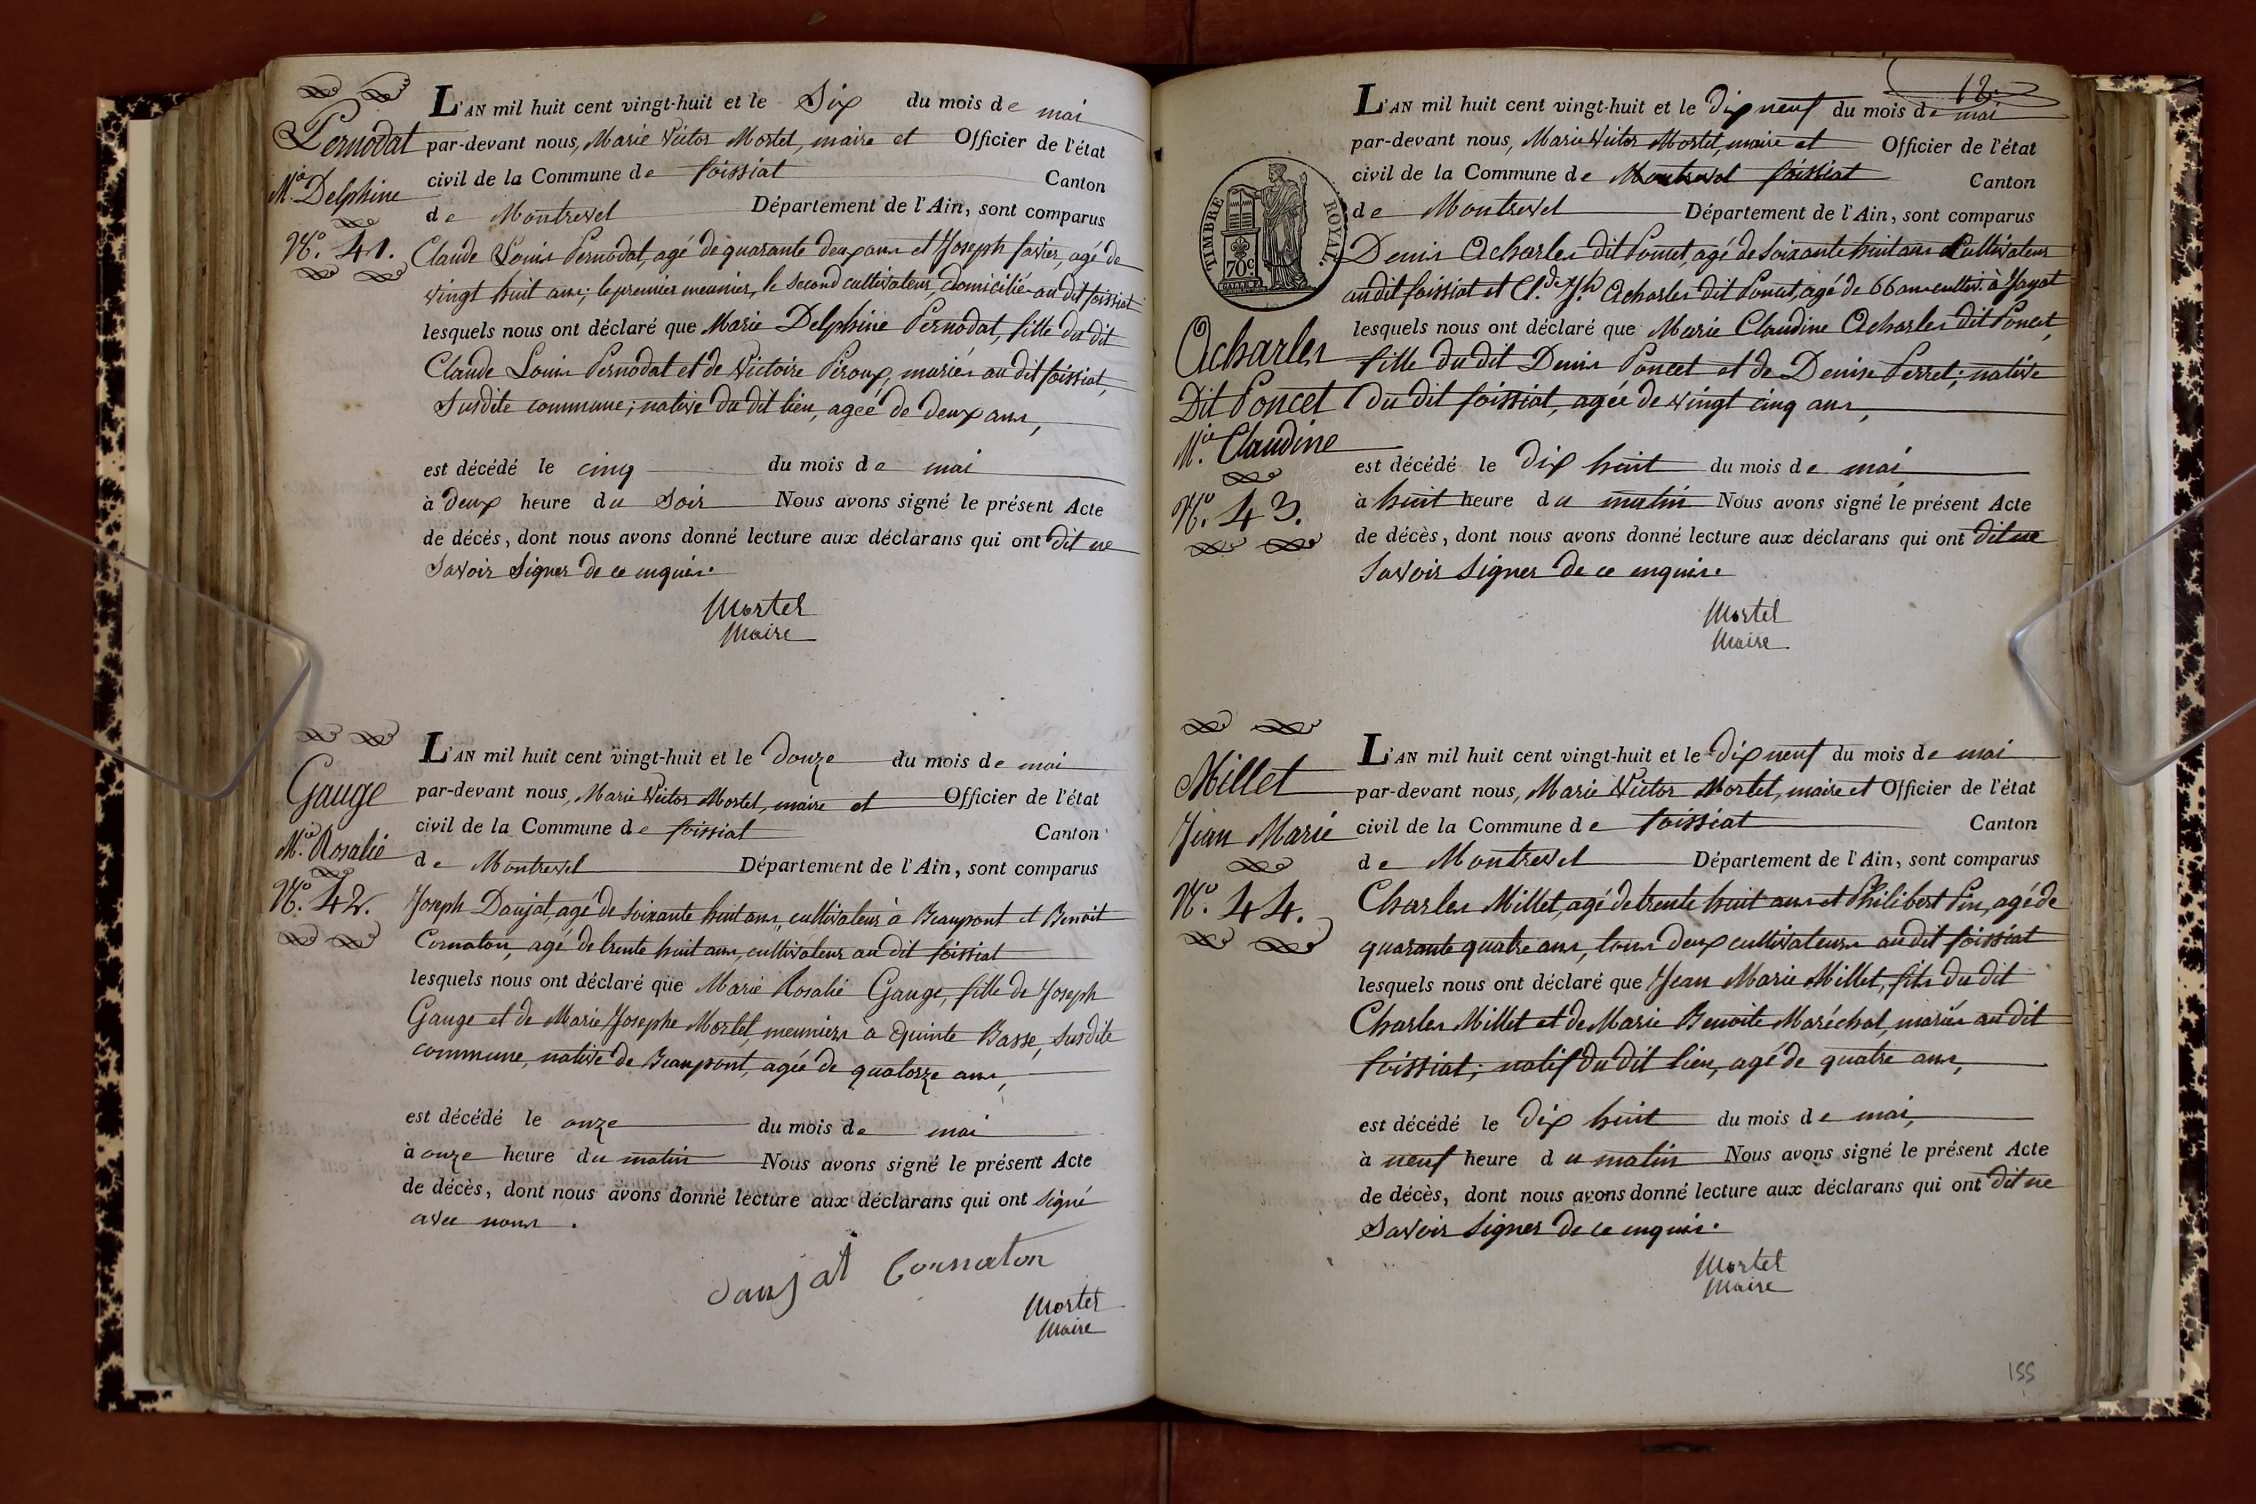 Pernodat
Mie Delphine
No. 41.
L'AN mil huit cent vingt-huit et le Six du mois de mai
par-devant nous, Marie Victor Mortel, maire et Officier de l'état
civil de la Commune de foissiat Canton
de Montrevel Département de l'Ain, sont comparus
Claude Louis Pernodat, agé de quarante deux ans et Joseph favier, agé de
vingt huit ans; le premier meunier, le second cultivateur, domicilié au dit foissiat
lesquels nous ont déclaré que Marie Delphine Pernodat, fille du dit
Claude Louis Pernodat et de Victoire Péroux, mariés au dit foissiat,
Susdite commune; native du dit lieu, ageé de deux ans,
est décédé le cinq du mois de mai
à deux heure du Soir Nous avons signé le présent Acte
de décès, dont nous avons donné lecture aux déclarans qui ont dit ne
Savoir Signer de ce enquis.
Mortel
Maire
Gauge
Mie Rosalie
No. 42.
L'AN mil huit cent vingt-huit et le douze du mois de mai
par-devant nous, Marie Victor Mortel, maire et Officier de l'état
civil de la Commune de foissiat Canton
de Montrevel Département de l'Ain, sont comparus
Joseph Daujat, agé de soixante huit ans, cultivateur à Beaupont et Benoit
Cornaton, agé de trente huit ans, cultivateur au dit foissiat
lesquels nous ont déclaré que Marie Rosalie Gauge, fille de Joseph
Gauge et de Marie Josephe Mortel, meuniers a Quinte Basse, susdite
commune, native de Beaupont, agée de quatorze ans,
est décédé le onze du mois de mai
à onze heure du matin Nous avons signé le présent Acte
de décès, dont nous avons donné lecture aux déclarans qui ont signé
avec nous.
daujat Cornaton
Mortel
Maire
12.
TIMBRE ROYAL.
70c
Acharles
Dit Poncet
Mie Claudine
No. 43.
L'AN mil huit cent vingt-huit et le dix neuf du mois de mai
par-devant nous, Marie Victor Mortel, maire et Officier de l'état
civil de la Commune de Montrevel foissiat Canton
de Montrevel Département de l'Ain, sont comparus
Denis Acharles dit Poncet, agé de soixante huit ans Cultivateur
au dit foissiat et Cl.de Jph Acharles dit Poncet, agé de 66 ans cultiv. à Jayat
lesquels nous ont déclaré que Marie Claudine Acharles dit Poncet,
fille du dit Denis Poncet et de Denise Perret; native
du dit foissiat, agée de vingt cinq ans,
est décédé le dix huit du mois de mai,
à huit heure du matin Nous avons signé le présent Acte
de décès, dont nous avons donné lecture aux déclarans qui ont dit ne
Savoir Signer de ce enquis.
Mortel
Maire
Millet
Jean Marie
No. 44.
L'AN mil huit cent vingt-huit et le dix neuf du mois de mai
par-devant nous, Marie Victor Mortel, maire et Officier de l'état
civil de la Commune de foissiat Canton
de Montrevel Département de l'Ain, sont comparus
Charles Millet, agé de trente huit ans et Philibert Pin, agé de
quarante quatre ans, tous deux cultivateurs au dit foissiat
lesquels nous ont déclaré que Jean Marie Millet, fils du dit
Charles Millet et de Marie Benoite Maréchal, mariés au dit
foissiat; natif du dit lieu, agé de quatre ans,
est décédé le dix huit du mois de mai,
à neuf heure du matin Nous avons signé le présent Acte
de décès, dont nous avons donné lecture aux déclarans qui ont dit ne
Savoir Signer de ce enquis.
Mortel
Maire
155